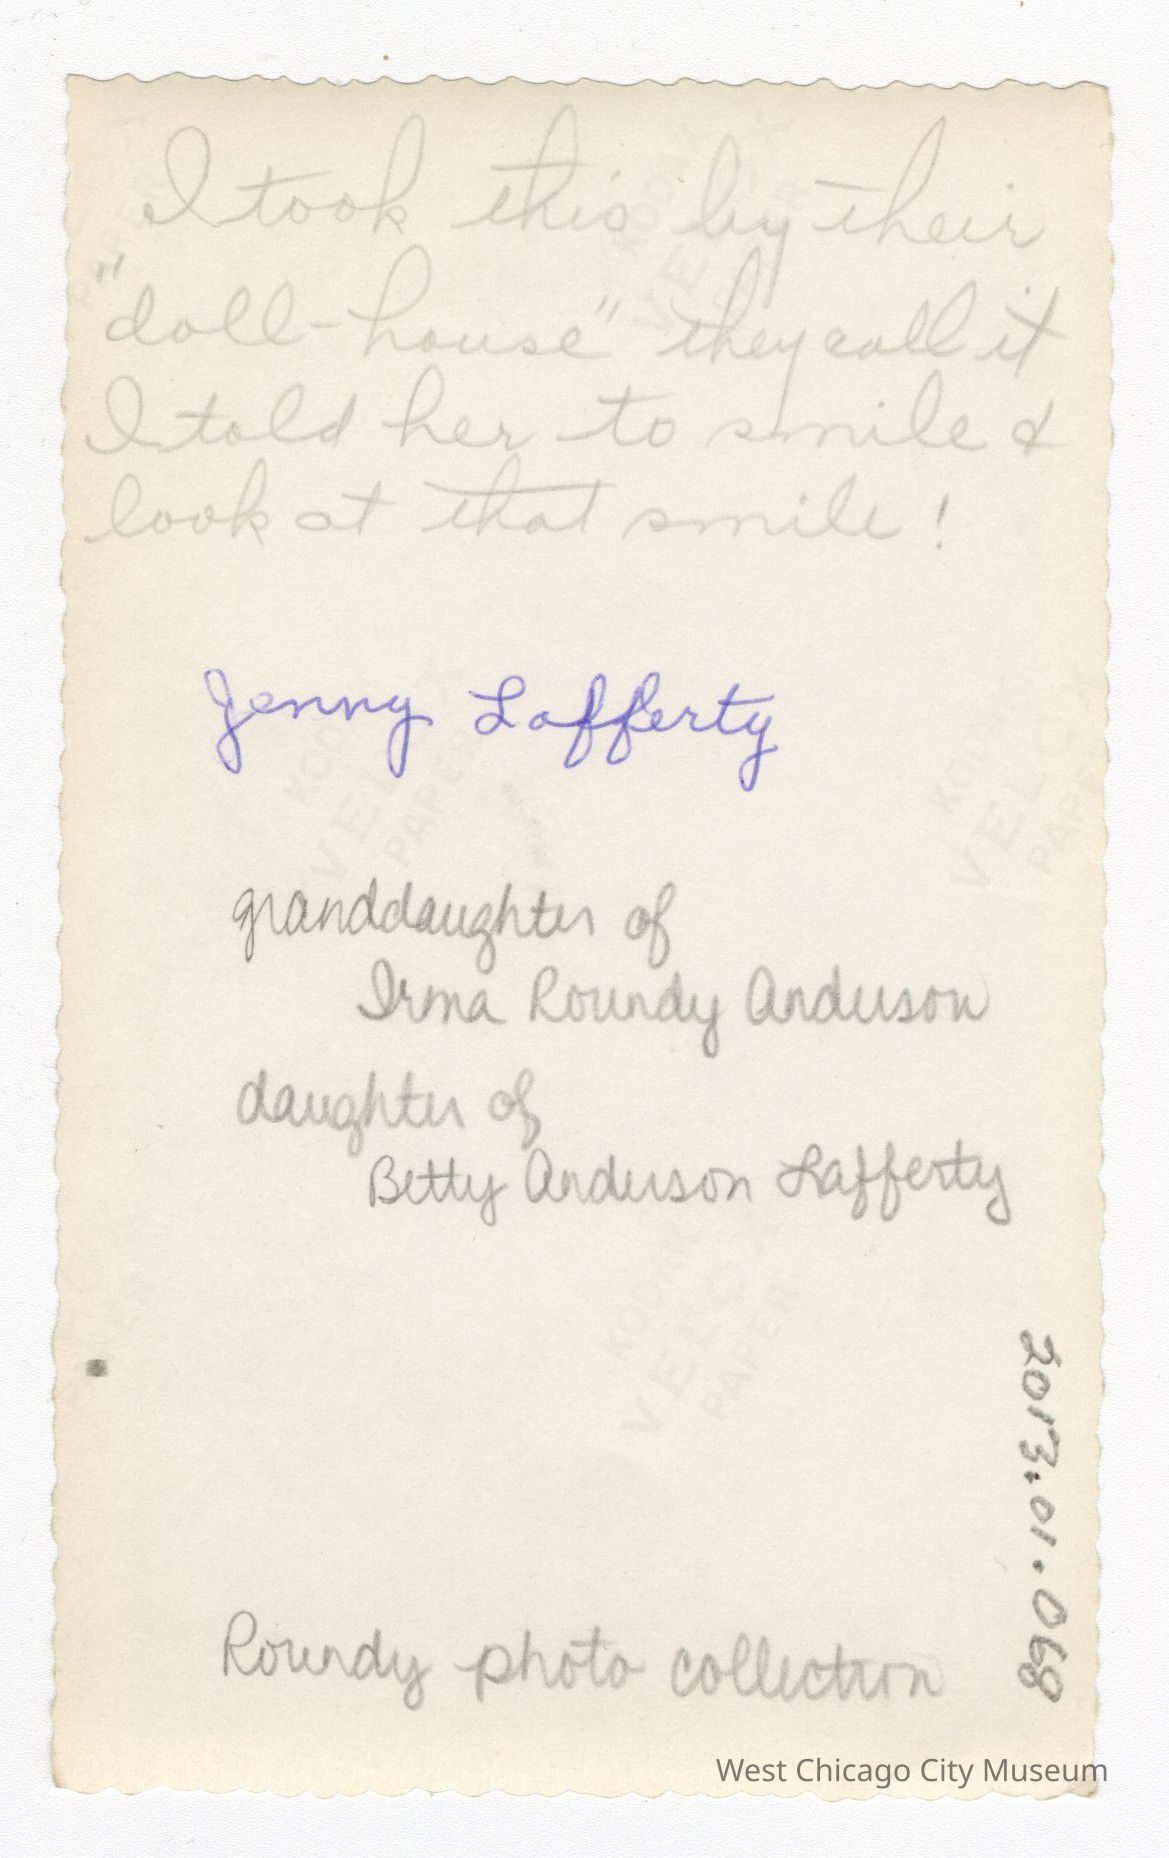 I took this by their
"doll-house" they call it
I told her to smile &
look at that smile!
Jenny Lafferty
KODAK
VELOX
PAPER
granddaughter of
Irma Roundy Anderson
daughter of
Betty Anderson Lafferty
KODAK
VELOX
PAPER
2013.01.068
Roundy photo collection
West Chicago City Museum